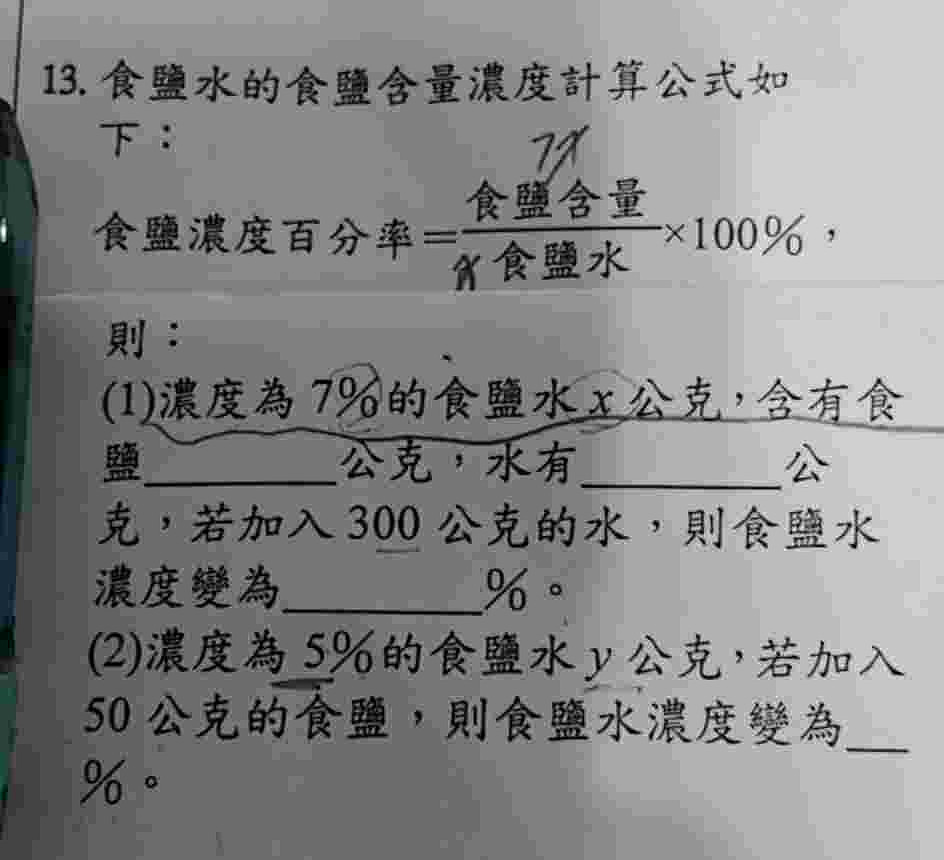 13. 食鹽水的食鹽含量濃度計算公式如
下：
7x
食鹽濃度百分率=食鹽含量/食鹽水×100%，
x
則：
(1)濃度為 7%的食鹽水 x 公克，含有食
鹽____公克，水有____公
克，若加入 300 公克的水，則食鹽水
濃度變為____%。
(2)濃度為 5%的食鹽水 y 公克，若加入
50 公克的食鹽，則食鹽水濃度變為__
%。